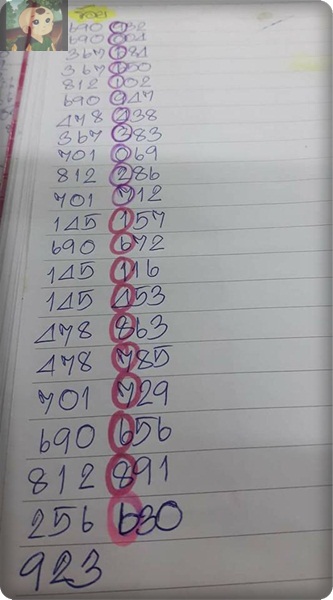 ร้อย
690 932
690
367 184
367
812 102
690 947
478 438
367 383
701 069
812 286
701 712
145 157
690 672
145 116
145 453
478 863
478 785
701 729
690 656
812 891
256 630
923